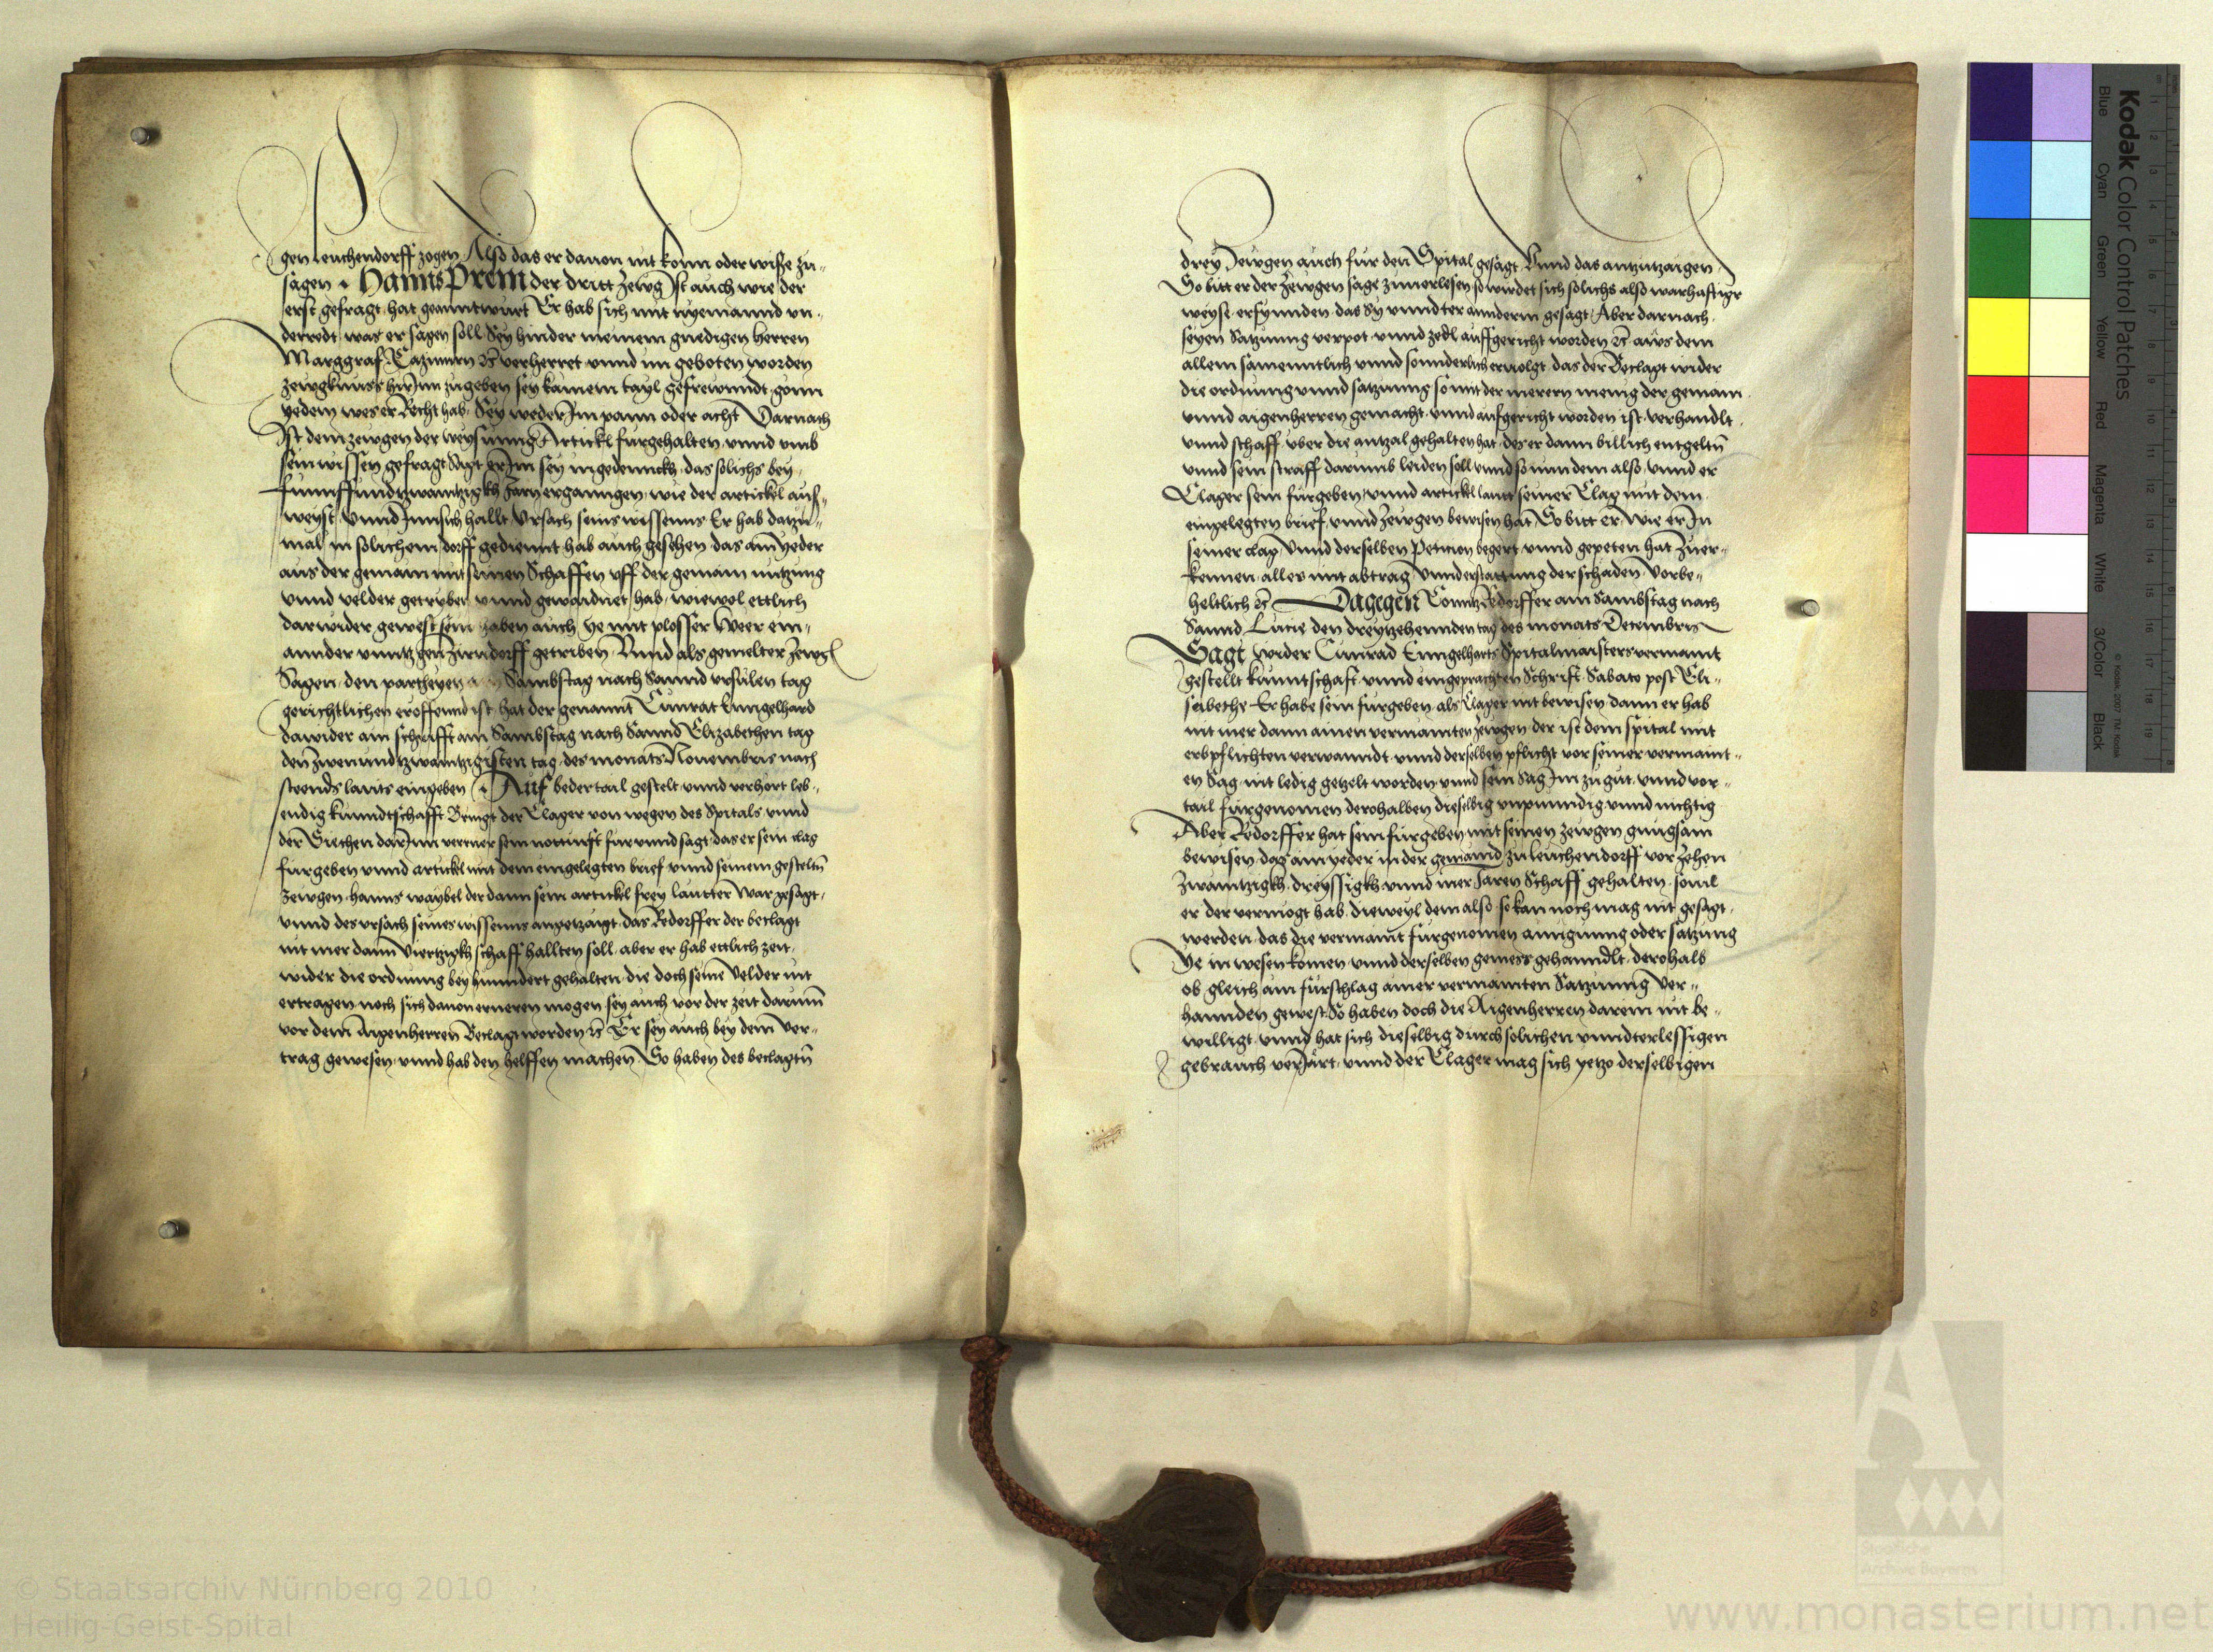 gen Leuchendorff zogen Also das er dauon nit konn oder wisse zu„
sagen Hanns Prem der dritt Zewg Ist auch wie der
erst gefragt hat geanntwurt Er hab sich mit nyemannd vn„
derredt was er sagen soll Sey hinder meinem gnedigen herren
Marggraf Cazimirn verherret vnnd im geboten worden
zewgknuss hirInn zu geben sey kainem tayl gefrewnndt gonn
yedem wes er Recht hab Sey weder Im pann oder acht Darnach
Ist dem zewgen der weysunng Artickl furgehalten vnnd vmb
sein wissen gefragt Sagt er Im sey ingedennckh das solichs bey„
funnffunndzwanntzigkh Jarn erganngen wie der artickel auß„
weyst Vnnd Innsich hallt Vrsach seins wissenns Er hab datzu„
mal in solichem dorff gediennt hab auch gesehen das ain yeder
aus der gemain mit seinen Schaffen vff der gemain nutzung
vnnd velder getryben vnnd gewaidnet hab wiewol ettlich
darwider gewest sein haben auch ye mit plosser Weer ein„
annder vnntz gen Zirndorff getriben Vnnd als gemelter Zewg
Sagen den partheyen Sambstag nach Sannd vrsulen tag
gerichtlichen eroffennd ist hat der genannt Cunrat Enngelhard
dawider ain schrifft am Sambstag nach Sannd Elizabethen tag
den zwenundzwanntzigisten tag des monats Nouembris nach
steends lauts eingeben Auf beder tail gestelt vnnd verhort leb„
endig kunndtschafft Bringt der Clager von wegen des Spitals vnnd
der Siechen darInn verrner sein notturft fur vnnd sagt das er sein clag
furgeben vnnd artickl mit dem eingelegten brief vnnd seinem gesteltn
Zewgen hanns waybel der dann sein artickl frey lautter war gesagt
vnnd des vrsach seines wissenns angetzaigt das Redorffer der beclagt
nit mer dann Viertzigkh schaff hallten soll aber er hab ettlich zeit
wider die ordnung bey hunndert gehalten die doch seine Velder nit
ertragen noch sich dauon erneren mogen sey auch vor der zeit darumb
vor dem Aigenherren Beclagt worden Er sey auch bey dem ver„
trag gewesen vnnd hab den helffen machen So haben des beclagtn
drey Zewgen auch fur den Spital gesagt Vnnd das antzutzaigen
So bitt er der Zewgen sage zuuerlesen so wirdet sich solichs also warhaftiger
weyse erfynnden das Sy vnndter annderm gesagt Aber darnach
seyen Satzunng verpot vnnd zedl auffgericht worden aws dem
allem samenntlich vnnd sonnderlich eruolgt das der Beclagt wider
die ordnung vnnd satzunng so mit der merern menig der gemain
vnnd aigenherren gemacht vnnd aufgericht worden ist verhandlt
vnnd schaff vber die antzal gehalten hat des er dann billich entgeltn
vnnd sein straff darumb leiden soll vnnd so nun dem also vnnd er
Clager sein furgeben vnnd artickl lautt seiner Clag mit dem
eingelegten brief vnnd Zewgen bewisen hat So bitt er wie er In
seiner clag vnnd derselben Peticion begert vnnd gepeten hat Zuer„
kennen alles mit abtrag vnnd erstattung der schaden Vorbe„
heltlich Dagegen Conntz Redorffer am Sambstag nach
Sannd Lucie den dreytzehennden tag des monats Decembris
Sagt wider Cunrad Enngelharts Spitalmaisters vermaint
gestellt kunntschaft vnnd eingeprachten Schrift Sabato post Eli„
sabethe Er habe sein furgeben als Clager nit bewisen dann er hab
nit mer dann ainen vermainten Zewgen der ist dem spital mit
erbpflichten verwanndt vnnd derselben pflicht vor seiner vermaint„
en Sag nit ledig getzelt worden vnnd sein Sag Im zu gut vnnd vor„
tail furgenomen derohalben dieselbig vnpunndig vnnd nichtig
Aber Redorffer hat sein furgeben mit seinen zewgen gnugsam
bewisen das ain yeder in der gemaind zu leuchendorff vor zehen
Zwanntzigkh dreyssigkh vnnd mer Jaren Schaff gehalten souil
er der vermogt hab dieweyl dem also so kan noch mag nit gesagt
werden das die vermaint furgenomen aynigunng oder satzung
Ye in wesen komen vnnd derselben gemess gehanndlt derohalb
ob gleich ain furschlag ainer vermainten Satzunng Ver„
hannden gewest So haben doch die Aigenherren darein nit be„
willigt vnnd hat sich dieselbig durch solichen vnndterlessigen
gebrauch verJart vnnd der Clager mag sich yetzo derselbigen
8
Kodak Color Control Patches
Blue Cyan Green Yellow Red Magenta White 3/Color Black
© Kodak, 2007 TM: Kodak
© Staatsarchiv Nürnberg 2010
Heilig-Geist-Spital
Staatliche
Archive Bayerns
www.monasterium.net